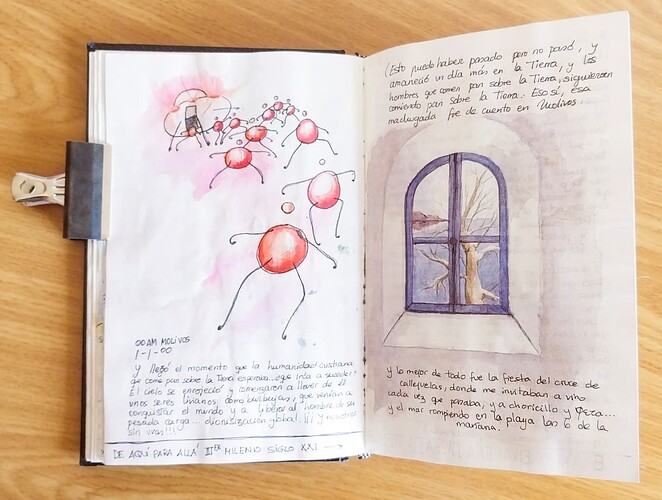 00 AM MOLIVOS
1-1-00
Y llegó el momento que la humanidad cristiana
que come pan sobre la Tierra esperaba... ¿qué iría a suceder?
El cielo se enrojeció y comenzaron a llover de él
unos seres livianos, como burbujas, que venían a
conquistar el mundo y a liberar al hombre de su
pesada carga... dionisización global ¡¡¡ y nosotros
sin uvas!!!
DE AQUÍ PARA ALLÁ IIER MILENIO SIGLO XXI →
(Esto puedo haber pasado pero no pasó, y
amaneció un día más en la Tierra, y los
hombres que comen pan sobre la Tierra, siguieron
comiendo pan sobre la Tierra. Eso sí, esa
madrugada fue de cuento en Molivos.
Y lo mejor de todo fue la fiesta del cruce de
callejuelas, donde me invitaban a vino
cada vez que pasaba, y a choricillo y Feta...
y el mar rompiendo en la playa las 6 de la
mañana.